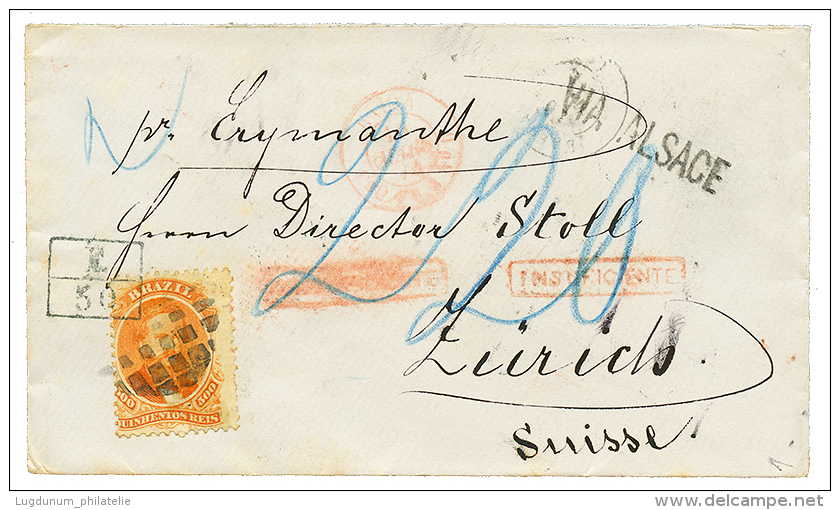 pr. Erymanthe
VIA ALSACE
Herrn Director Stoll
220
INSUFICIENTE
E
50
BRAZIL
500 500
QUINHENTOS REIS
Zürich.
Suisse.
1
Lugdunum_philatelie
delcampe.net